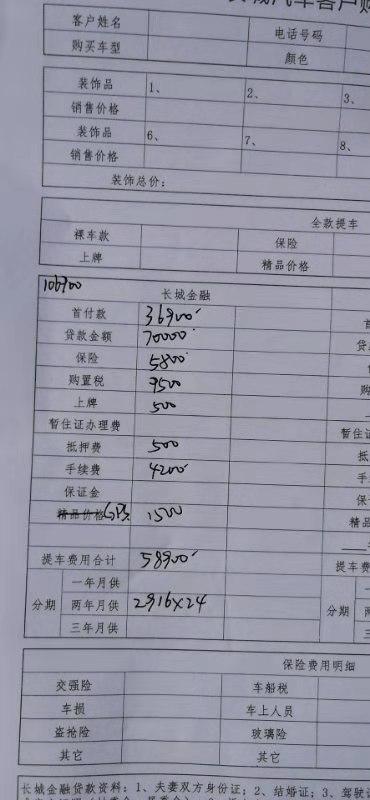 汽车客户购
客户姓名 电话号码
购买车型 颜色
装饰品 1、 2、 3、
销售价格
装饰品 6、 7、 8、
销售价格
装饰总价:
全款提车
裸车款 保险
上牌 精品价格
106900 长城金融
首付款 36900
贷款金额 70000 贷
保险 5800
购置税 9500 购
上牌 500
暂住证办理费 暂住
抵押费 500 抵
手续费 4200 手
保证金 保
精品价格 GPS 1500 精品
提车费用合计 58900 提车费
分期 一年月供 分期 一
两年月供 2916×24 两
三年月供 三
保险费用明细
交强险 车船税
车损 车上人员
盗抢险 玻璃险
其它 其它
长城金融贷款资料:1、夫妻双方身份证;2、结婚证;3、驾驶证